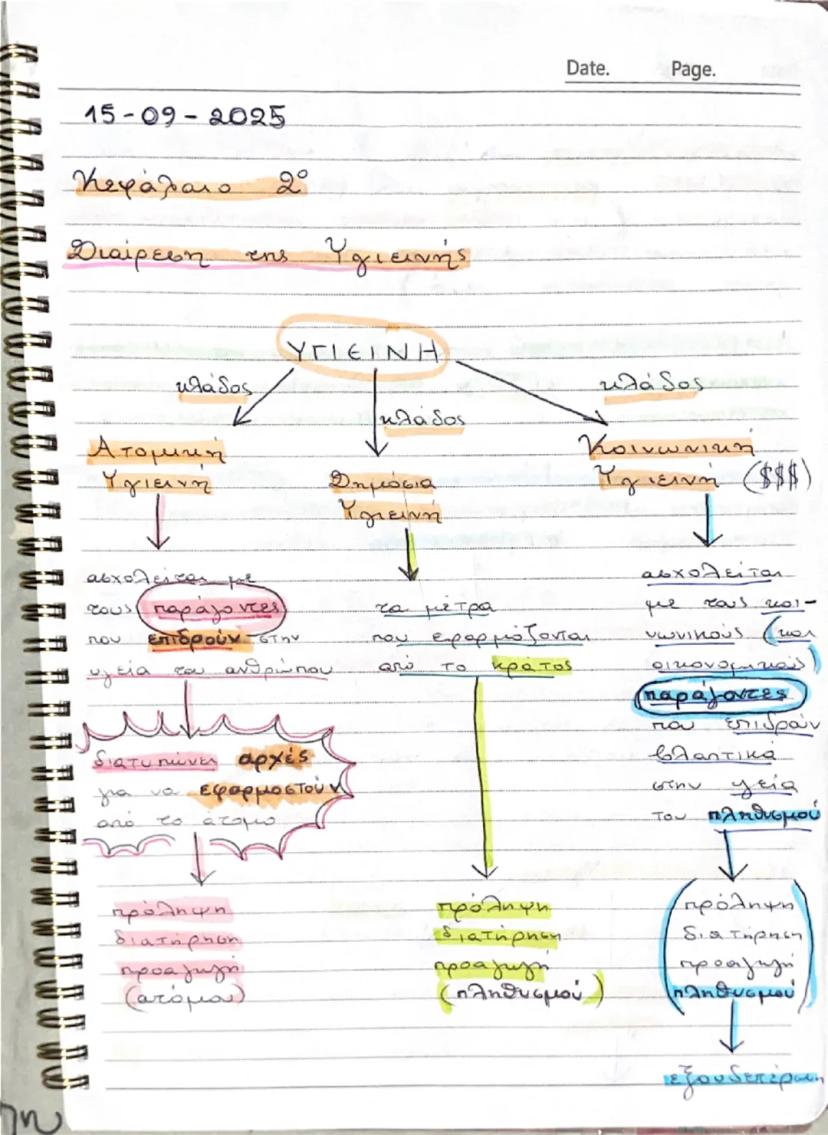 Date. Page.
15-09-2025
Κεφάλαιο 2°
Διαίρεση της Υγιεινής
ΥΓΙΕΙΝΗ
κλάδος
κλάδος
κλάδος
Ατομική
Υγιεινή
ασχολείται με
τους παράγοντες
που επιδρούν στην
υγεία του ανθρώπου
διατυπώνει αρχές
για να εφαρμοστούν
από το άτομο
πρόληψη
διατήρηση
προαγωγή
(ατόμου)
Δημόσια
Υγιεινή
τα μέτρα
που εφαρμόζονται
από το κράτος
πρόληψη
διατήρηση
προαγωγή
(πληθυσμού)
Κοινωνική
Υγιεινή ($$$)
ασχολείται
με τους κοι-
νωνικούς (και
οικονομικούς)
παράγοντες
που επιδρούν
βλαπτικά
στην υγεία
του πληθυσμού
(πρόληψη
διατήρηση
προαγωγή
πληθυσμού)
εξουδετέρωση